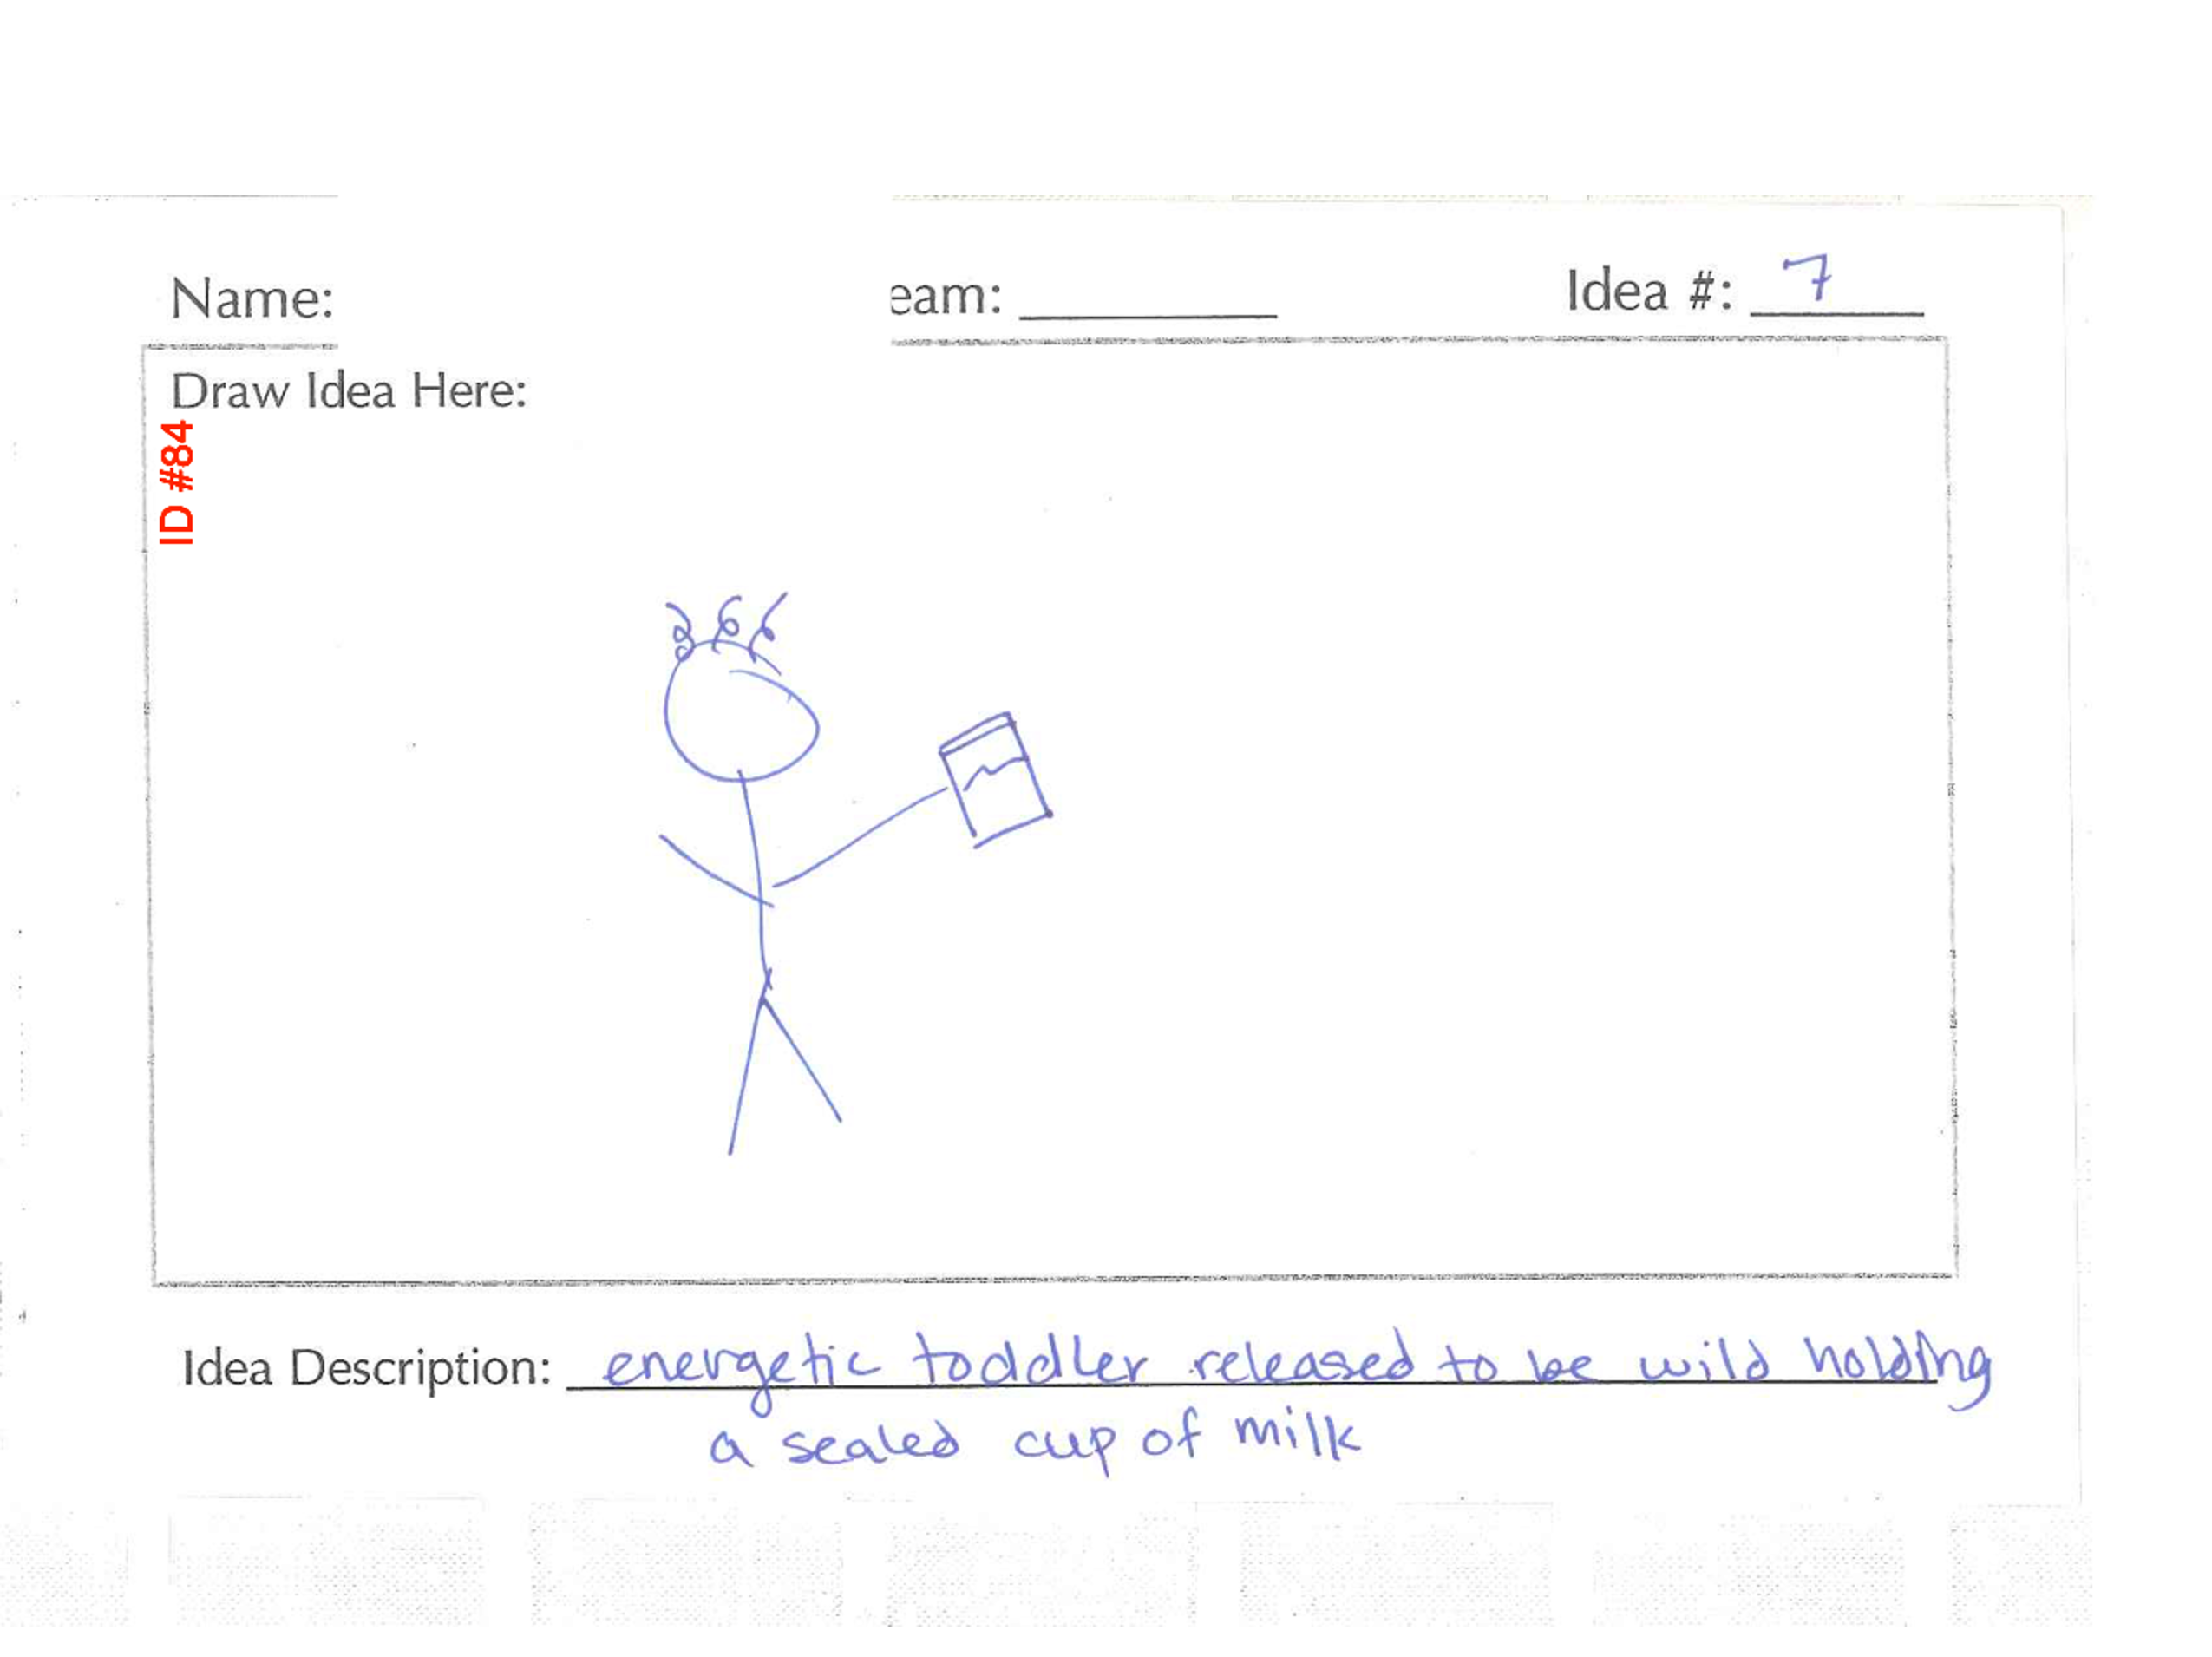 Name: eam: Idea #: 7
Draw Idea Here:
ID #84
Idea Description: energetic toddler released to be wild holding
a sealed cup of milk